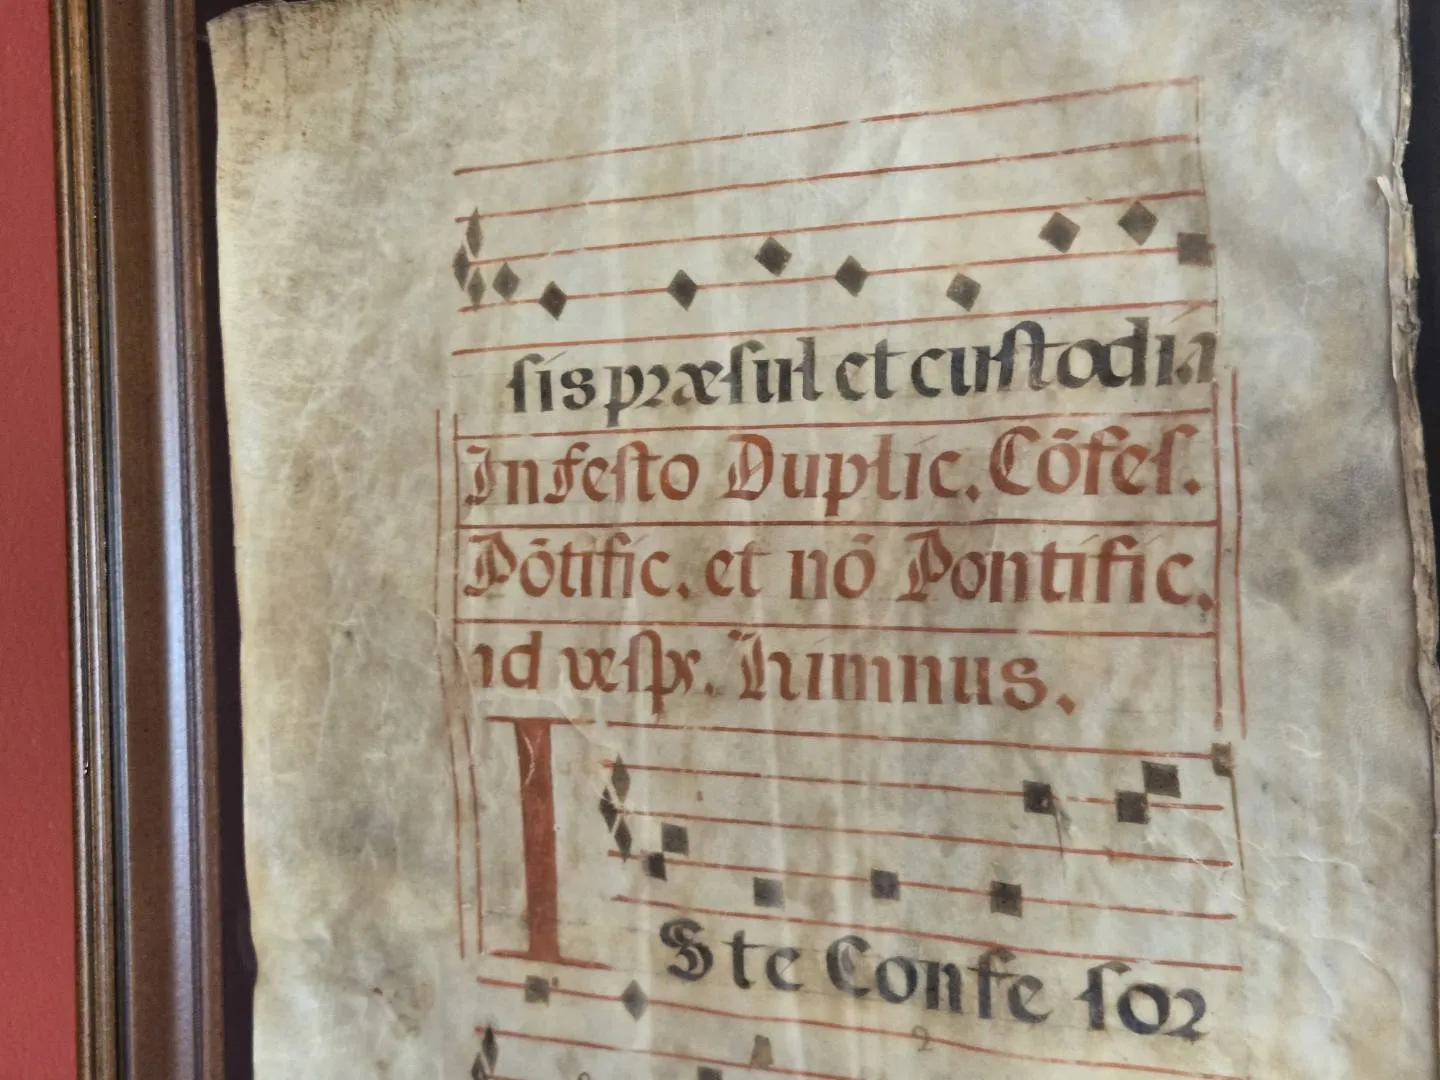 sis præsul et custodia
In Festo Duplic. Cõfes.
Põtific. et nõ Pontific.
ad vesp. Himnus.
ISte Confe sor